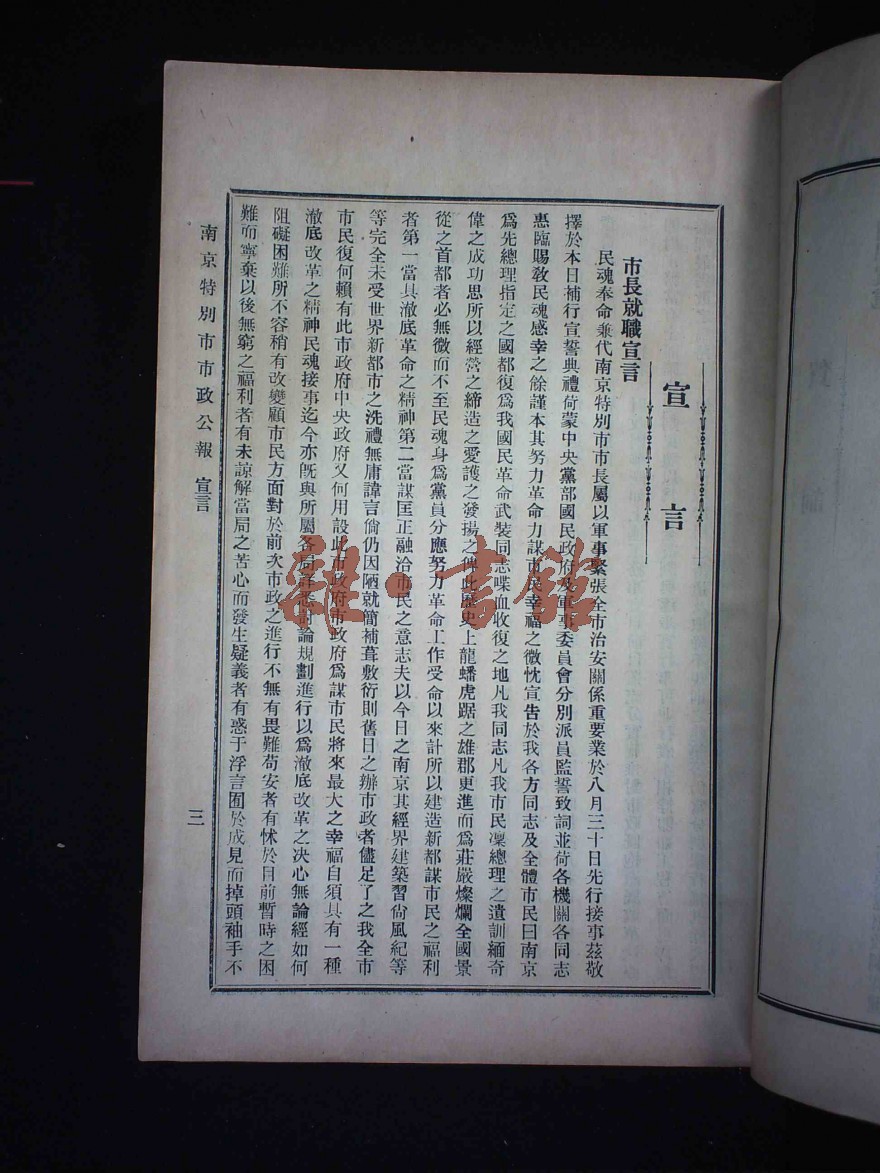 宣言
市長就職宣言
民魂奉命兼代南京特別市市長屬以軍事緊張全市治安關係重要業於八月三十日先行接事茲敬
擇於本日補行宣誓典禮荷蒙中央黨部國民政府及軍事委員會分別派員監誓致詞並荷各機關各同志
惠臨賜敎民魂感幸之餘謹本其努力革命力謀市民幸福之微忱宣告於我各方同志及全體市民曰南京
爲先總理指定之國都復爲我國民革命武裝同志喋血收復之地凡我同志凡我市民凜總理之遺訓緬奇
偉之成功思所以經營之締造之愛護之發揚之俾此歷史上龍蟠虎踞之雄郡更進而爲莊嚴燦爛全國景
從之首都者必無微而不至民魂身爲黨員分應努力革命工作受命以來計所以建造新都謀市民之福利
者第一當具澈底革命之精神第二當謀匡正融洽市民之意志夫以今日之南京其經界建築習尙風紀等
等完全未受世界新都市之洗禮無庸諱言倘仍因陋就簡補葺敷衍則舊日之辦市政者儘足了之我全市
市民復何賴有此市政府中央政府又何用設此市政府市政府爲謀市民將來最大之幸福自須具有一種
澈底改革之精神民魂接事迄今亦旣與所屬各局詳悉討論規劃進行以爲澈底改革之決心無論經如何
阻礙困難所不容稍有改變顧市民方面對於前次市政之進行不無有畏難苟安者有怵於目前暫時之困
難而寧棄以後無窮之福利者有未諒解當局之苦心而發生疑義者有惑于浮言囿於成見而掉頭袖手不
南京特別市市政公報 宣言
三
雜·書館